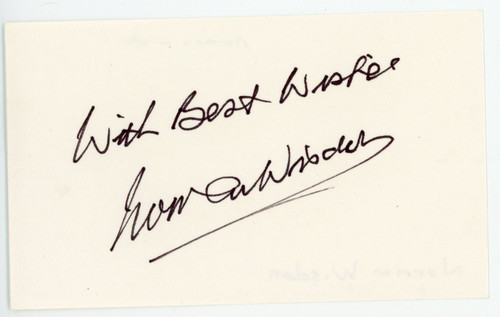 With Best Wishes
Norman Wisdom